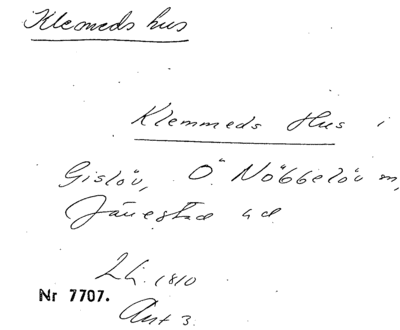 Klemeds hus
Klemmeds Hus i
Gislöv, Ö. Nöbbelöv m,
Järrestad hd
Lh. 1810
Nr 7707.
Ant 3.